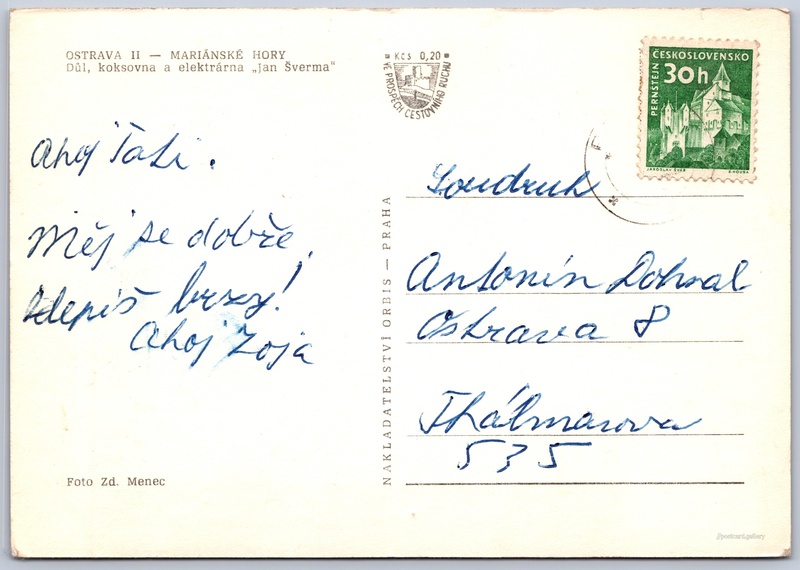 OSTRAVA II — MARIÁNSKÉ HORY
Důl, koksovna a elektrárna „Jan Šverma"
Kčs 0,20
VE PROSPĚCH CESTOVNÍHO RUCHU
ČESKOSLOVENSKO
PERNŠTEJN
30h
JAROSLAV ŠVÁB
Ahoj Taťi.
Měj se dobře,
brzy!
Ahoj Zoja
Soudruh
Antonín Dohnal
Ostrava 8
Thálmanova
535
NAKLADATELSTVÍ ORBIS — PRAHA
Foto Zd. Menec